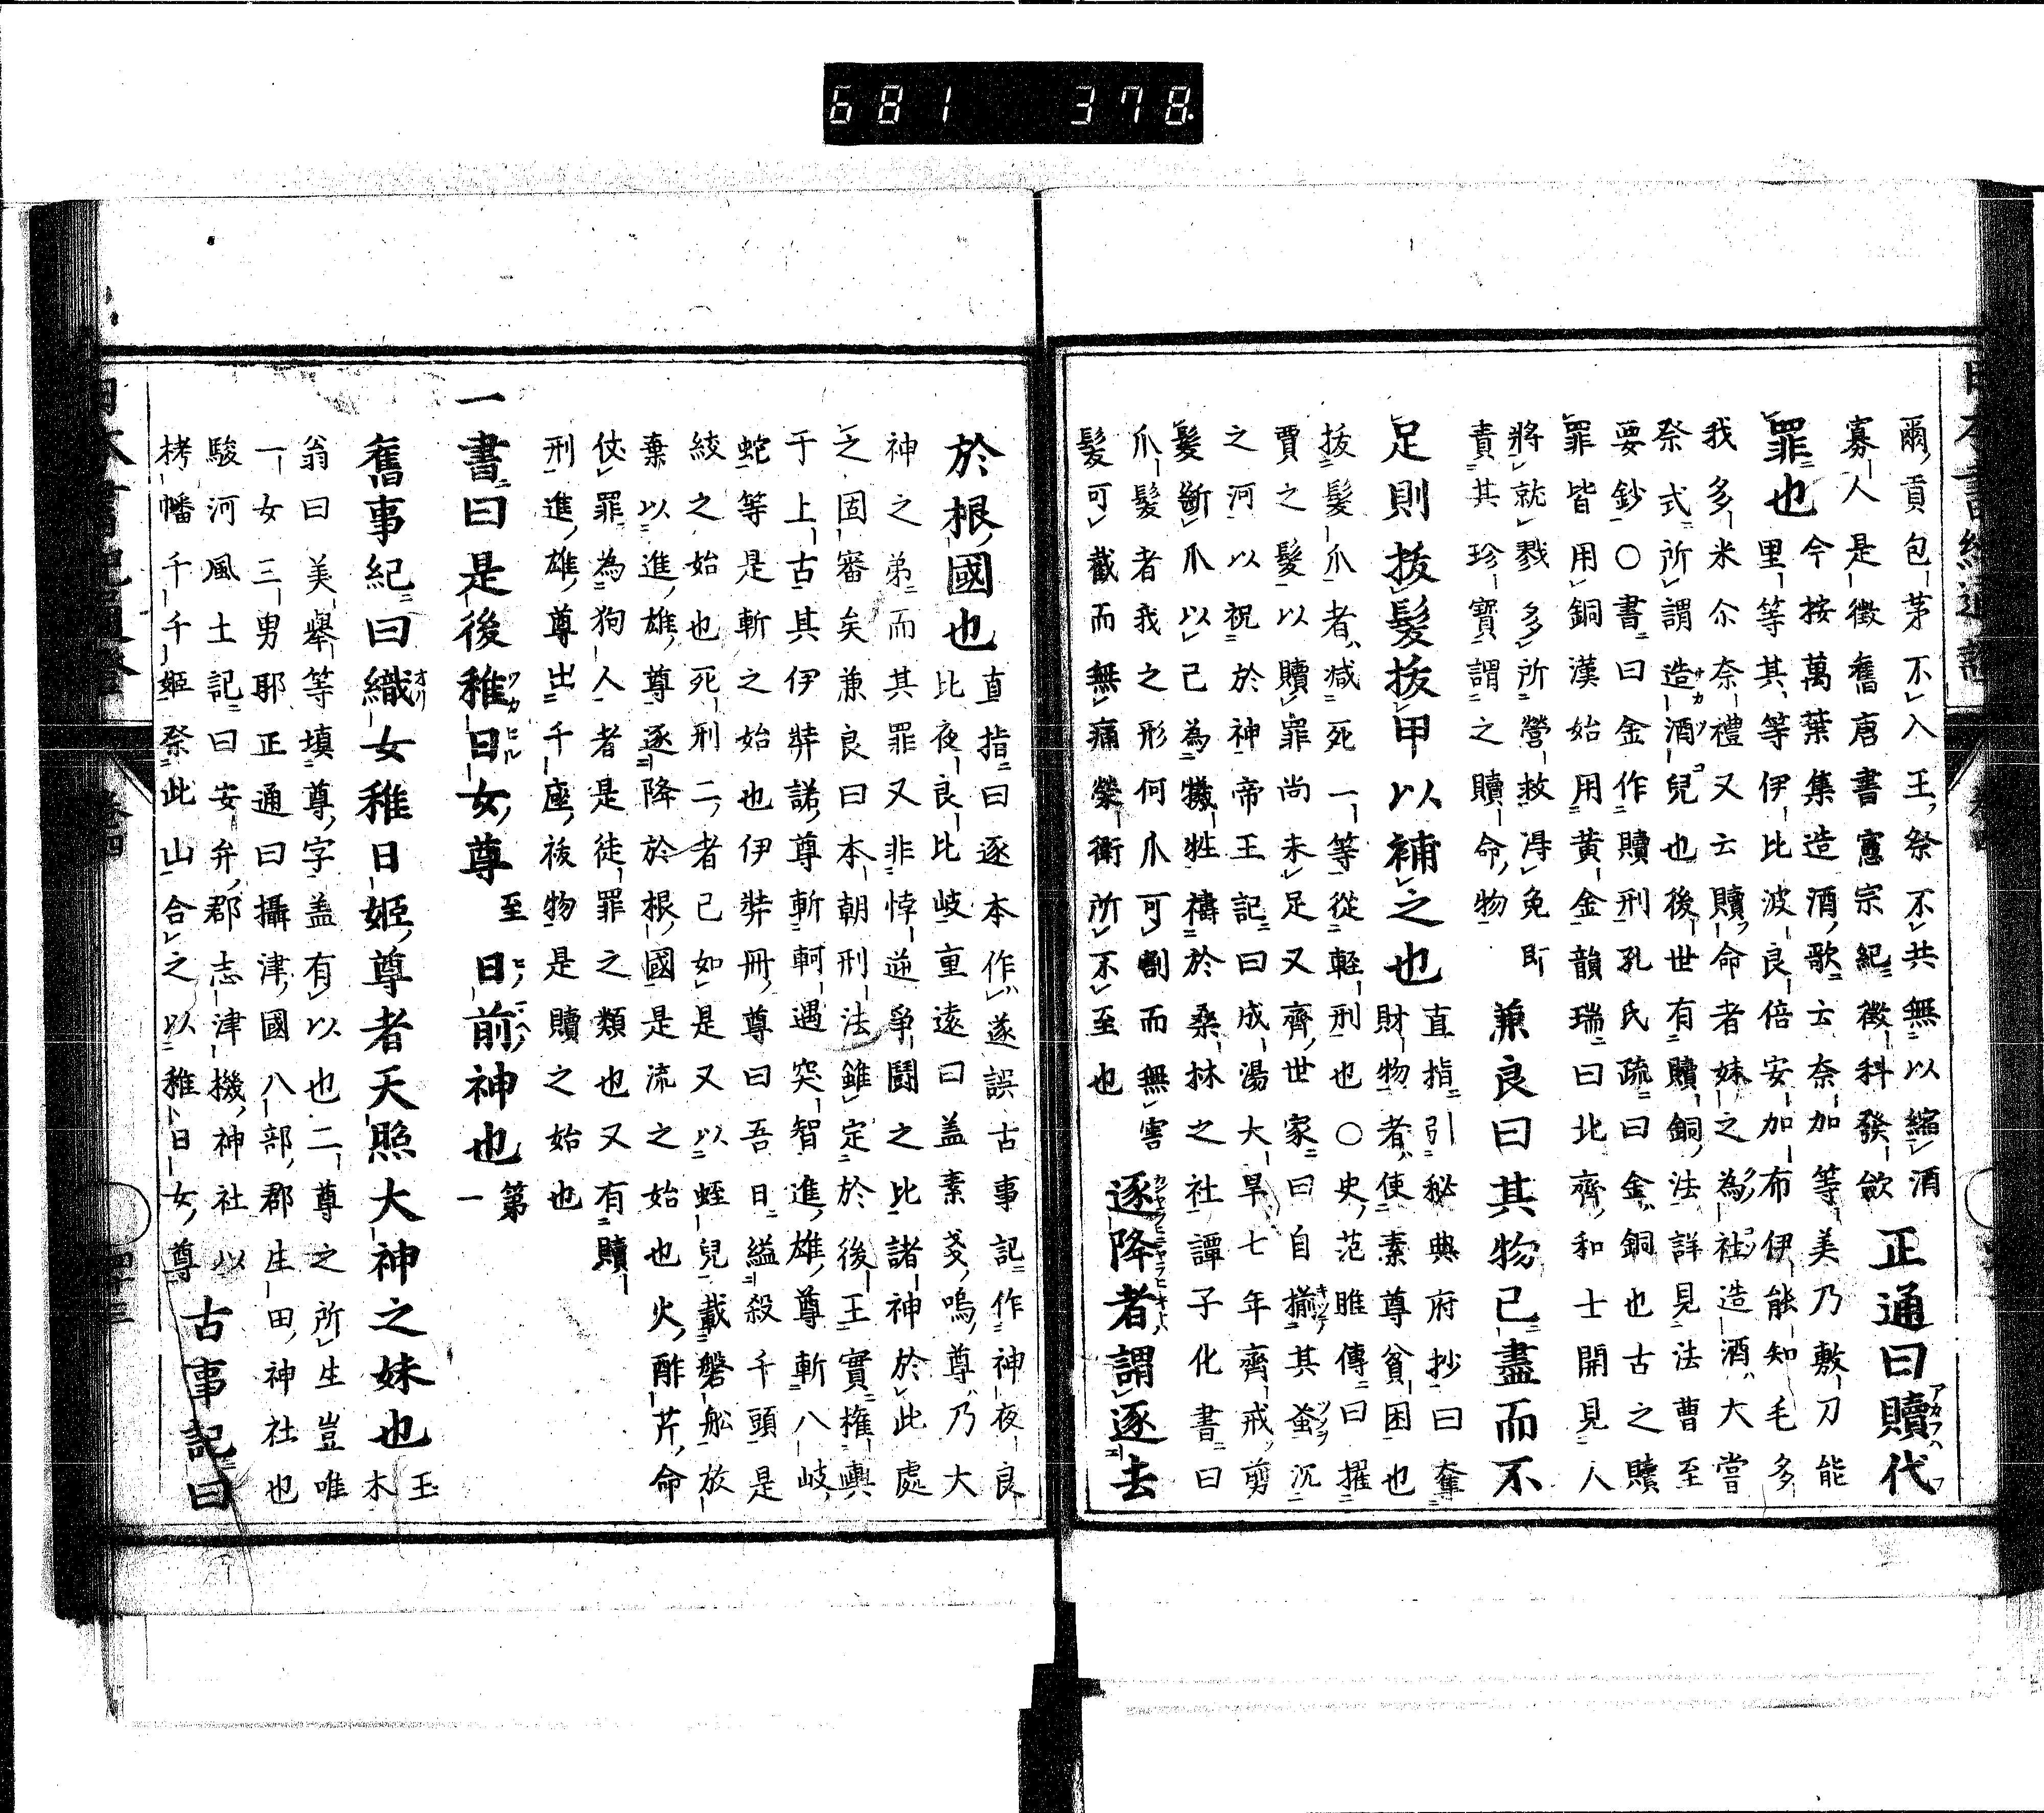 681 378
爾貢包茅不入王祭不共無以縮酒 正通曰贖代
寡人是徵舊唐書憲宗紀徵科發歛
罪也 今按萬葉集造酒歌云奈加等美乃敷刀能
里等其等伊比波良倍安加布伊能知毛多
我多米尓奈禮又云贖命者妹之為社造酒大嘗
祭式所謂造酒兒也後世有贖銅法詳見法曹至
要鈔○書曰金作贖刑孔氏疏曰金銅也古之贖
罪皆用銅漢始用黄金韻瑞曰北齊和士開見人
將就戮多所營救得免即
責其珍寶謂之贖命物 兼良曰其物已盡而不
足則拔髮拔甲以補之也 直指引秘典府抄曰奪
財物者使素尊貧困也
拔髮爪者減死一等從輕刑也○史范睢傳曰擢
賈之髮以贖罪尚未足又齊世家曰自揃其蚤沉
之河以祝於神帝王記曰成湯大旱七年齊戒剪
髮斷爪以己為犧牲禱於桑林之社譚子化書曰
爪髮者我之形何爪可割而無害
髮可截而無痛榮衛所不至也 逐降者謂逐去
於根國也 直指曰逐本作遂誤古事記作神夜良
比夜良比岐重遠曰盖素戔嗚尊乃大
神之弟而其罪又非悖逆爭鬪之比諸神於此處
之固審矣兼良曰本朝刑法錐定於後王實權輿
于上古其伊弉諾尊斬軻遇突智進雄尊斬八岐
蛇等是斬之始也伊弉冊尊曰吾日縊殺千頭是
絞之始也死刑二者已如是又以蛭兒載磐船放
棄以進雄尊逐降於根國是流之始也火酢芹命
伏罪為狗人者是徒罪之類也又有贖
刑進雄尊出千座祓物是贖之始也
一書曰是後稚日女尊至日前神也第一
舊事紀曰織女稚日姫尊者天照大神之妹也 玉木
翁曰美擧等填尊字盖有以也二尊之所生豈唯
一女三男耶正通曰攝津國八部郡生田神社也
駿河風土記曰安弁郡志津機神社以
栲幡千千姫祭此山合之以稚日女尊 古事記曰